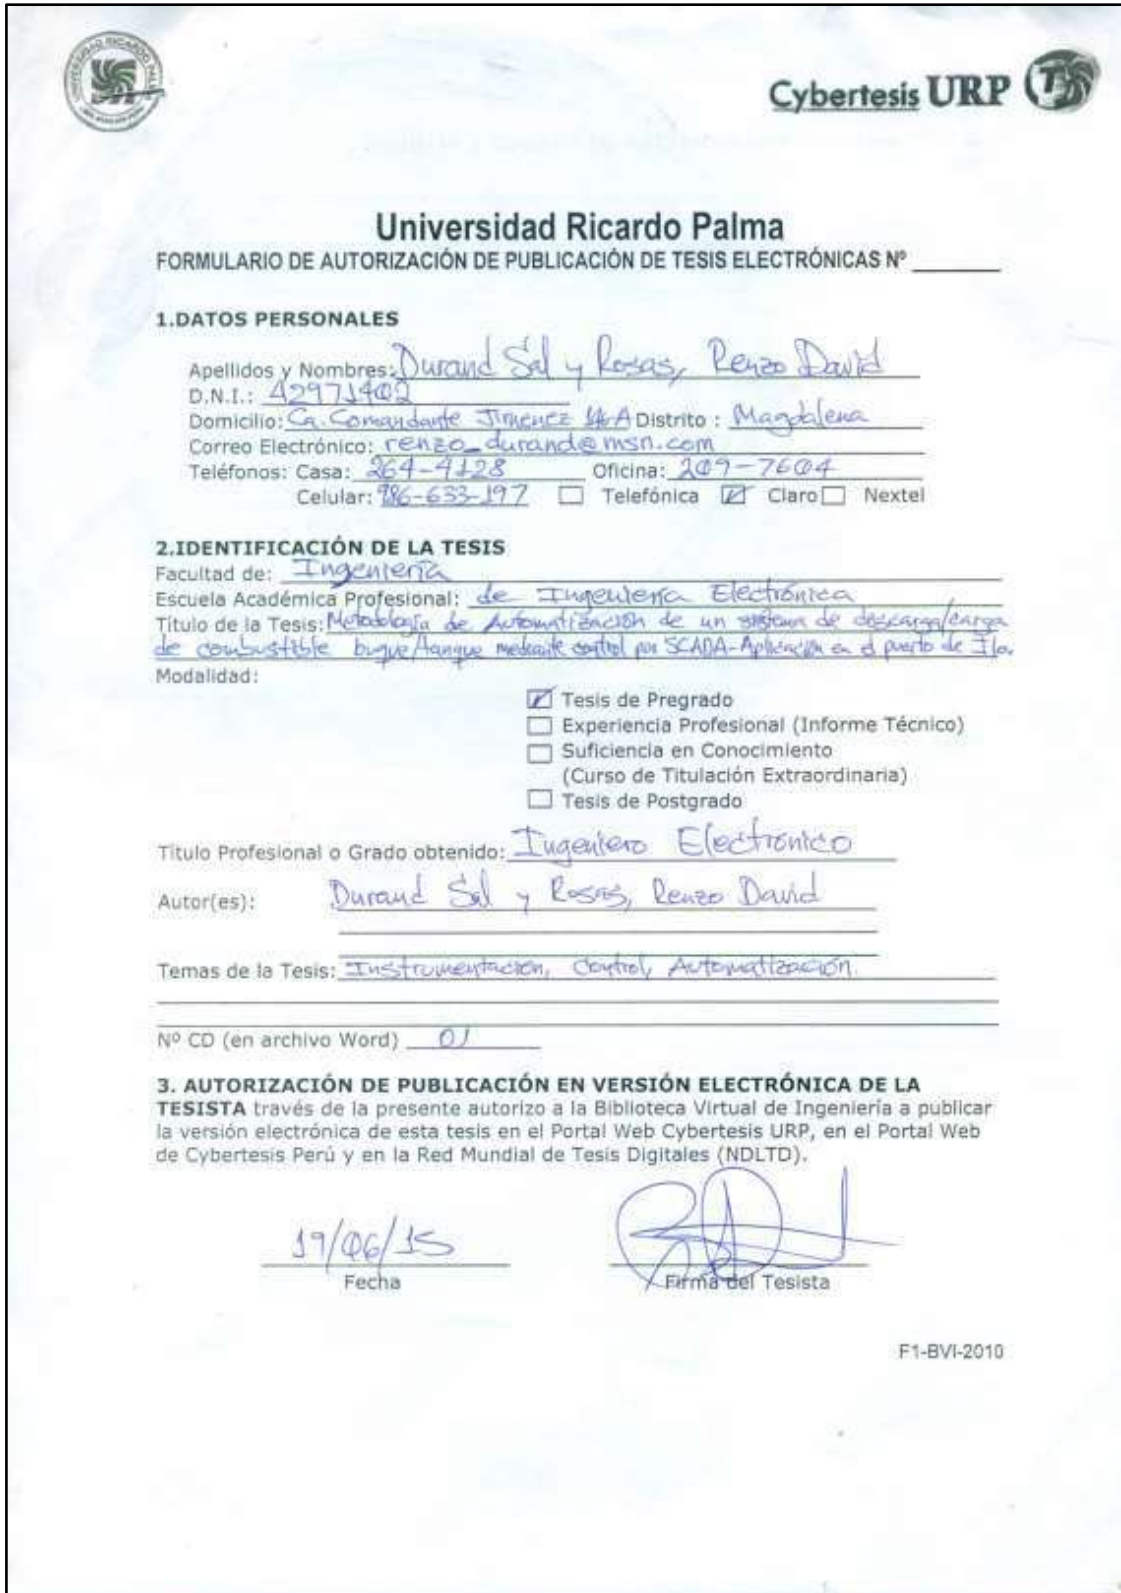 UNIVERSIDAD RICARDO PALMA
Cybertesis URP
Universidad Ricardo Palma
FORMULARIO DE AUTORIZACIÓN DE PUBLICACIÓN DE TESIS ELECTRÓNICAS Nº
1.DATOS PERSONALES
Apellidos y Nombres: Durand Sal y Rosas, Renzo David
D.N.I.: 42971402
Domicilio: Ca. Comandante Jimenez Distrito : Magdalena
Correo Electrónico: renzo_durand@msn.com
Teléfonos: Casa: 264-4128 Oficina: 209-7604
Celular: 986-633-197 Telefónica Claro Nextel
2.IDENTIFICACIÓN DE LA TESIS
Facultad de: Ingeniería
Escuela Académica Profesional: de Ingeniería Electrónica
Título de la Tesis: Metodología de Automatización de un sistema de descarga/carga
de combustible buque/tanque mediante control por SCADA-Aplicación en el puerto de Ilo.
Modalidad:
Tesis de Pregrado
Experiencia Profesional (Informe Técnico)
Suficiencia en Conocimiento
(Curso de Titulación Extraordinaria)
Tesis de Postgrado
Título Profesional o Grado obtenido: Ingeniero Electrónico
Autor(es): Durand Sal y Rosas, Renzo David
Temas de la Tesis: Instrumentación, Control, Automatización.
Nº CD (en archivo Word) 01
3. AUTORIZACIÓN DE PUBLICACIÓN EN VERSIÓN ELECTRÓNICA DE LA
TESISTA través de la presente autorizo a la Biblioteca Virtual de Ingeniería a publicar
la versión electrónica de esta tesis en el Portal Web Cybertesis URP, en el Portal Web
de Cybertesis Perú y en la Red Mundial de Tesis Digitales (NDLTD).
19/06/15
Fecha Firma del Tesista
F1-BVI-2010